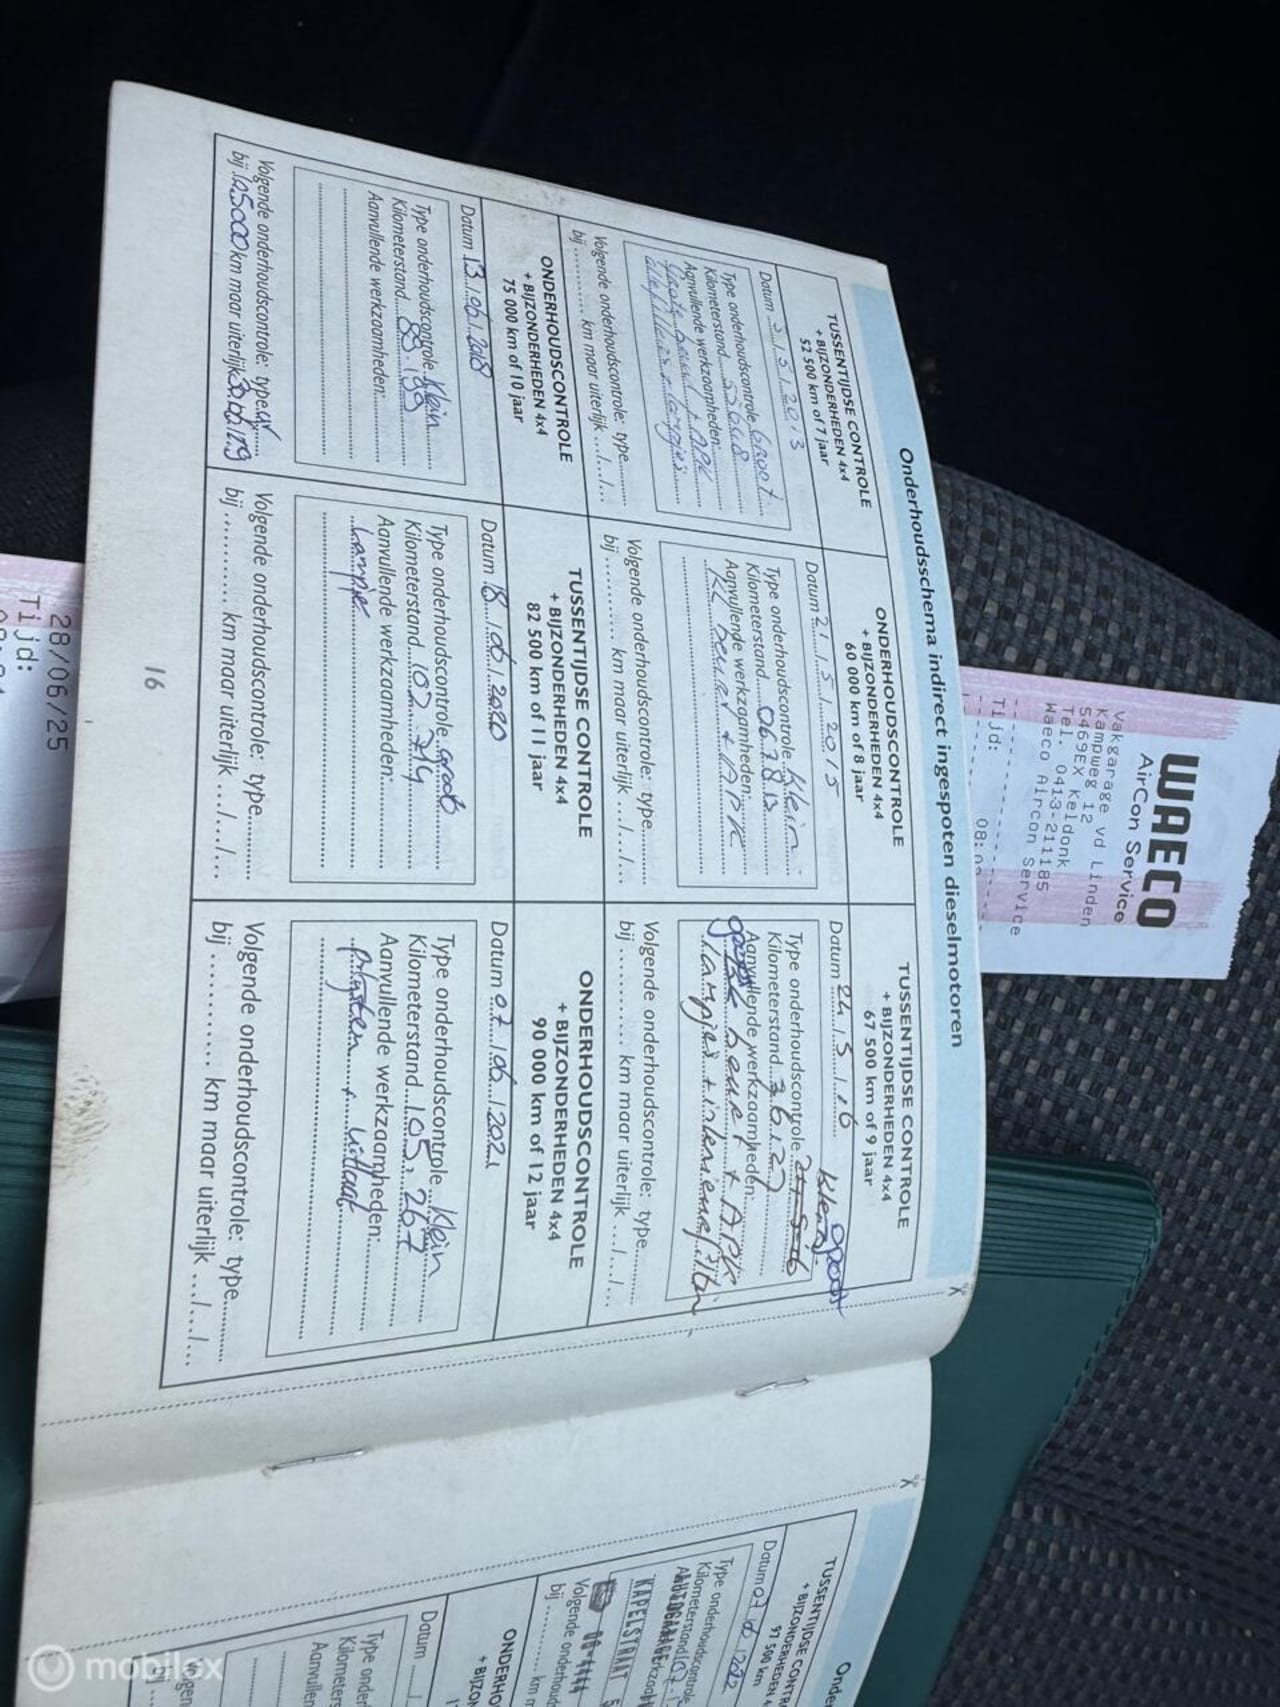 Onderhoudsschema indirect ingespoten dieselmotoren
TUSSENTIJDSE CONTROLE
+ BIJZONDERHEDEN 4x4
52 500 km of 7 jaar
Datum 3.1.5.1.2013
Type onderhoudscontrole Groot
Kilometerstand 52618
Aanvullende werkzaamheden:
Grote beurt + APK
Volgende onderhoudscontrole: type
bij .......... km maar uiterlijk .../.../...
ONDERHOUDSCONTROLE
+ BIJZONDERHEDEN 4x4
60 000 km of 8 jaar
Datum 21.1.5.1.2015
Type onderhoudscontrole Klein
Kilometerstand
Aanvullende werkzaamheden:
KL beurt + APK
Volgende onderhoudscontrole: type
bij .......... km maar uiterlijk .../.../...
TUSSENTIJDSE CONTROLE
+ BIJZONDERHEDEN 4x4
67 500 km of 9 jaar
Datum 24.1.5.1.16
groot
Type onderhoudscontrole
Kilometerstand
Aanvullende werkzaamheden:
beurt + APK
lampjes + interieurfilter
Volgende onderhoudscontrole: type
bij .......... km maar uiterlijk .../.../...
ONDERHOUDSCONTROLE
+ BIJZONDERHEDEN 4x4
75 000 km of 10 jaar
Datum 13.06.2018
Type onderhoudscontrole Klein
Kilometerstand 88.188
Aanvullende werkzaamheden:
Volgende onderhoudscontrole: type gr
bij 105000 km maar uiterlijk
TUSSENTIJDSE CONTROLE
+ BIJZONDERHEDEN 4x4
82 500 km of 11 jaar
Datum 18.06.2020
Type onderhoudscontrole groot
Kilometerstand 102.
Aanvullende werkzaamheden:
Lampje
Volgende onderhoudscontrole: type
bij .......... km maar uiterlijk .../.../...
ONDERHOUDSCONTROLE
+ BIJZONDERHEDEN 4x4
90 000 km of 12 jaar
Datum 07.06.2021
Type onderhoudscontrole Klein
Kilometerstand 105.267
Aanvullende werkzaamheden:
+ uitlaat
Volgende onderhoudscontrole: type
bij .......... km maar uiterlijk .../.../...
16
WAECO
AirCon Service
Vakgarage vd Linden
Kampweg 12
5469EX Keldonk
Tel. 0413-211185
Waeco Aircon Service
Tijd:
28/06/25
Tijd:
Onde
TUSSENTIJDSE CONTR
+ BIJZONDERHEDEN 4
97 500 km
Datum
Type onderhoudscontrole
Kilometerstand
KAPELSTRAAT
Volgende onderhouds
bij .......... km m
ONDERHO
+ BIJZON
Datum
Type onder
Kilometers
Aanvullen
mobilox